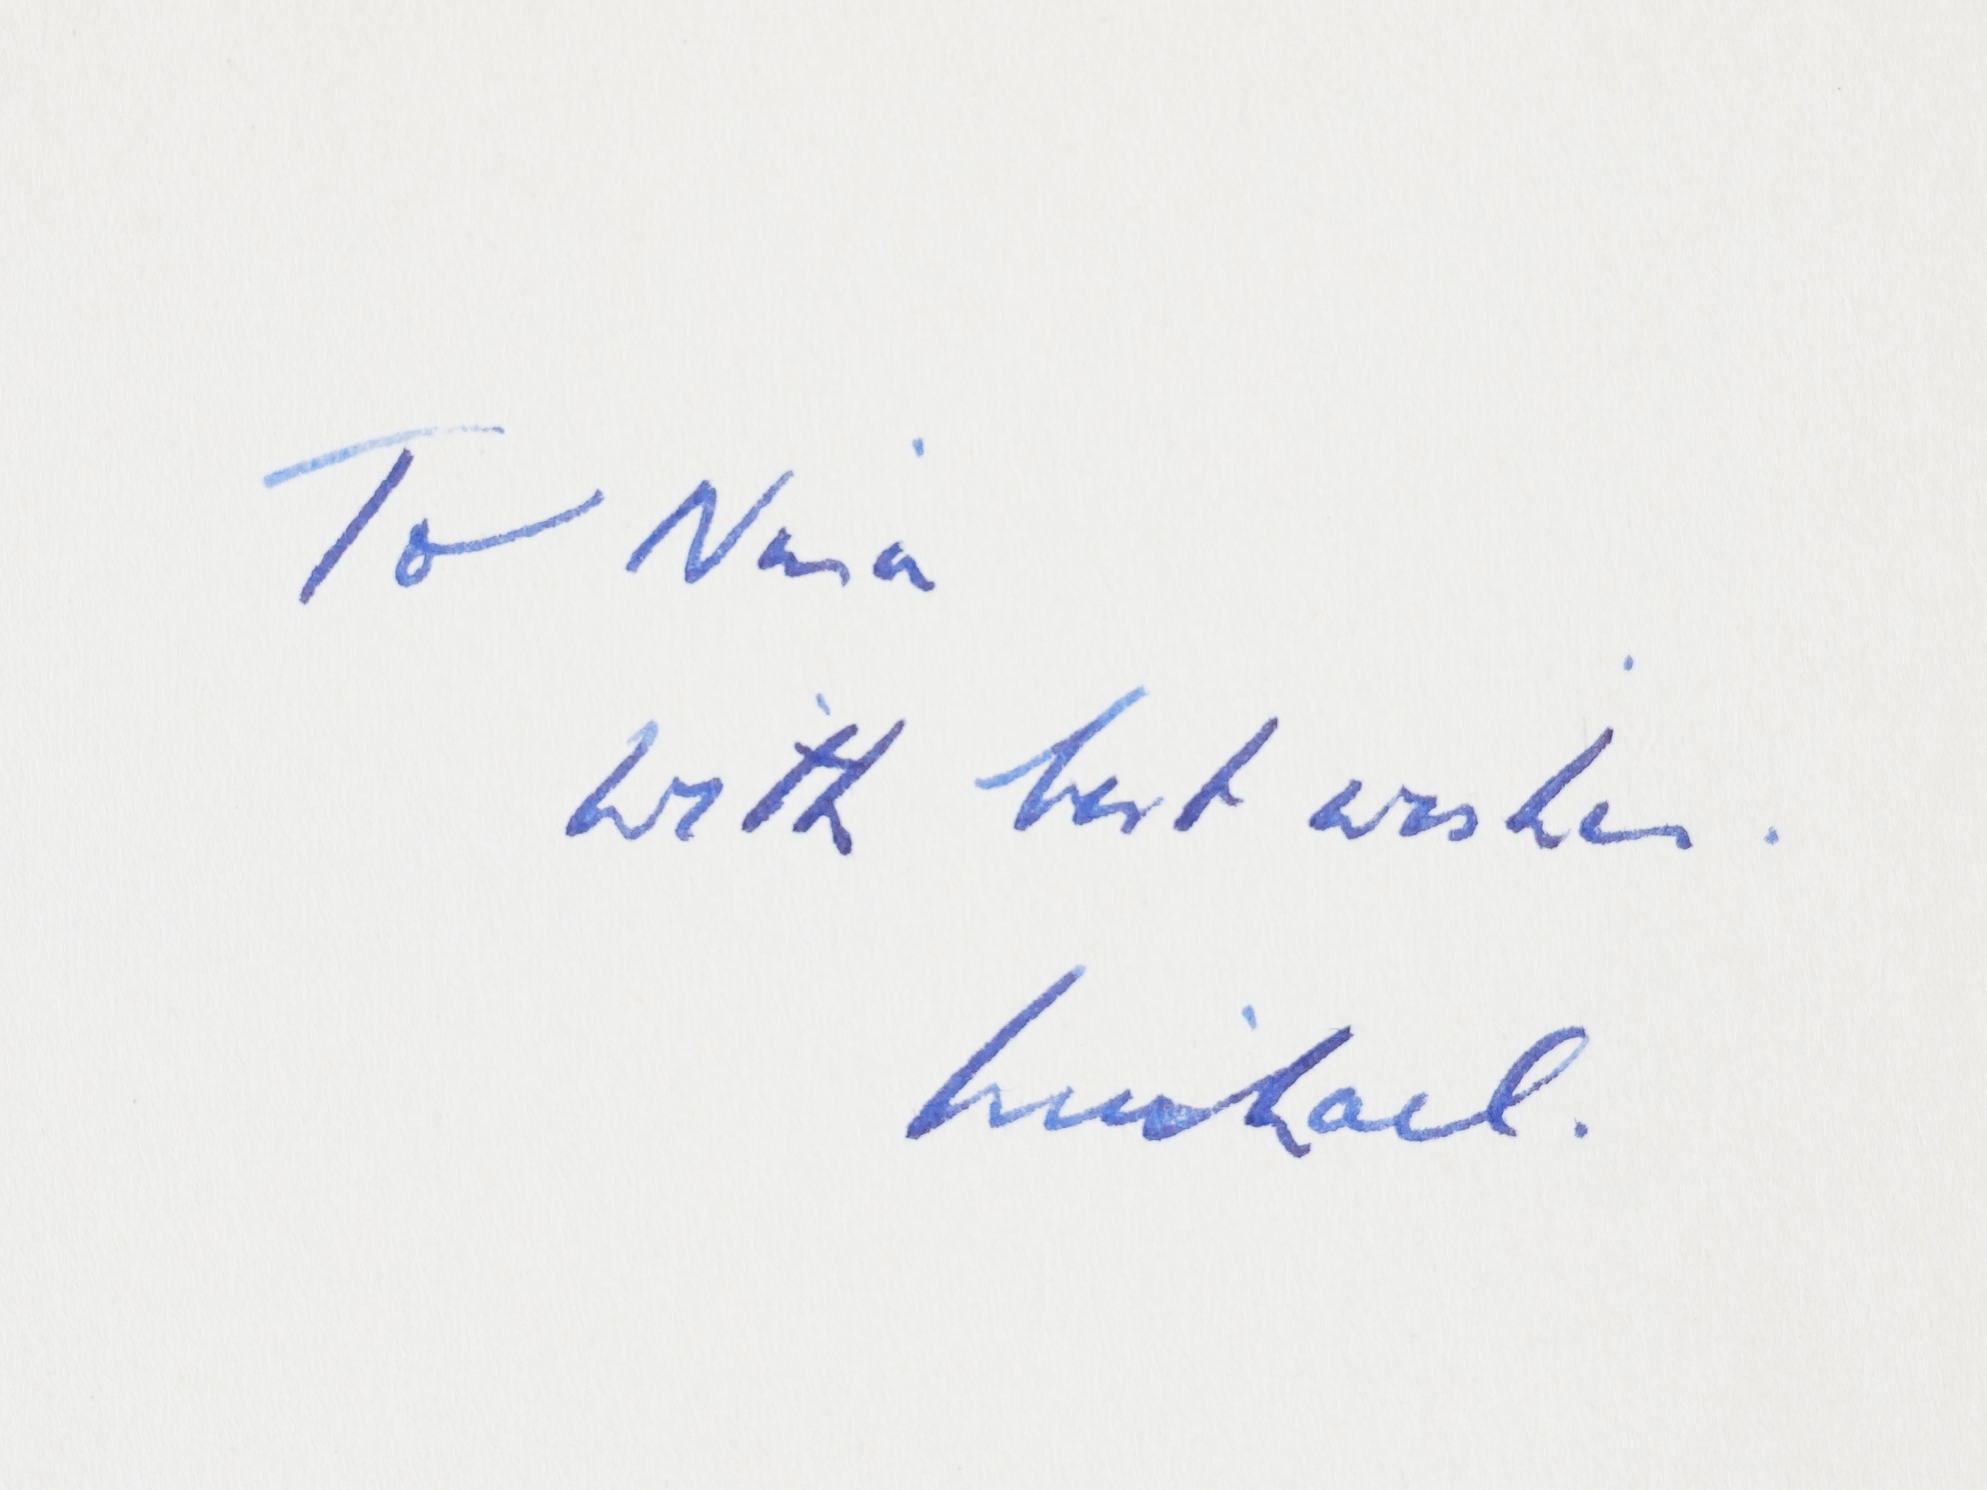 To Nina
with best wishes.
Michael.